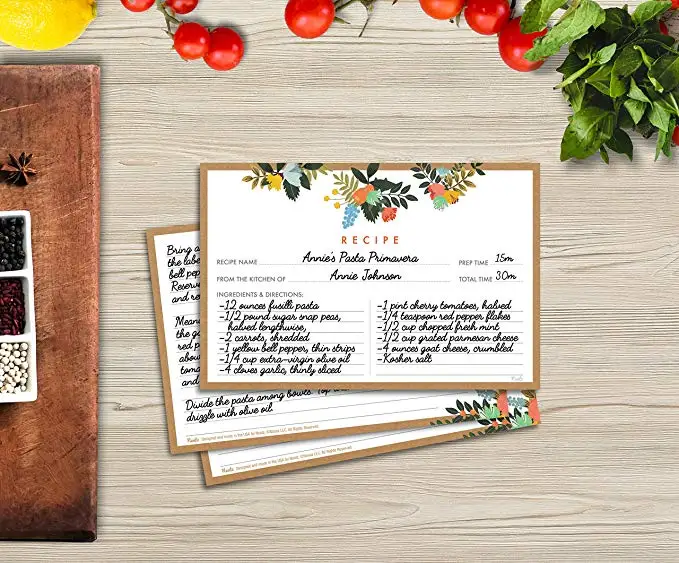 RECIPE
RECIPE NAME Annie's Pasta Primavera PREP TIME 15m
FROM THE KITCHEN OF Annie Johnson TOTAL TIME 30m
INGREDIENTS & DIRECTIONS:
-12 ounces fusilli pasta
-1/2 pound sugar snap peas,
halved lengthwise,
-2 carrots, shredded
-1 yellow bell pepper, thin strips
-1/4 cup extra-virgin olive oil
-4 cloves garlic, thinly sliced
-1 pint cherry tomatoes, halved
-1/4 teaspoon red pepper flakes
-1/2 cup chopped fresh mint
-1/2 cup grated parmesan cheese
-4 ounces goat cheese, crumbled
-Kosher salt
Bring a
the label
bell pep
Reserve
and re
Mean
the go
red p
abou
toma
and
Divide the pasta among bowls. Top
drizzle with olive oil.